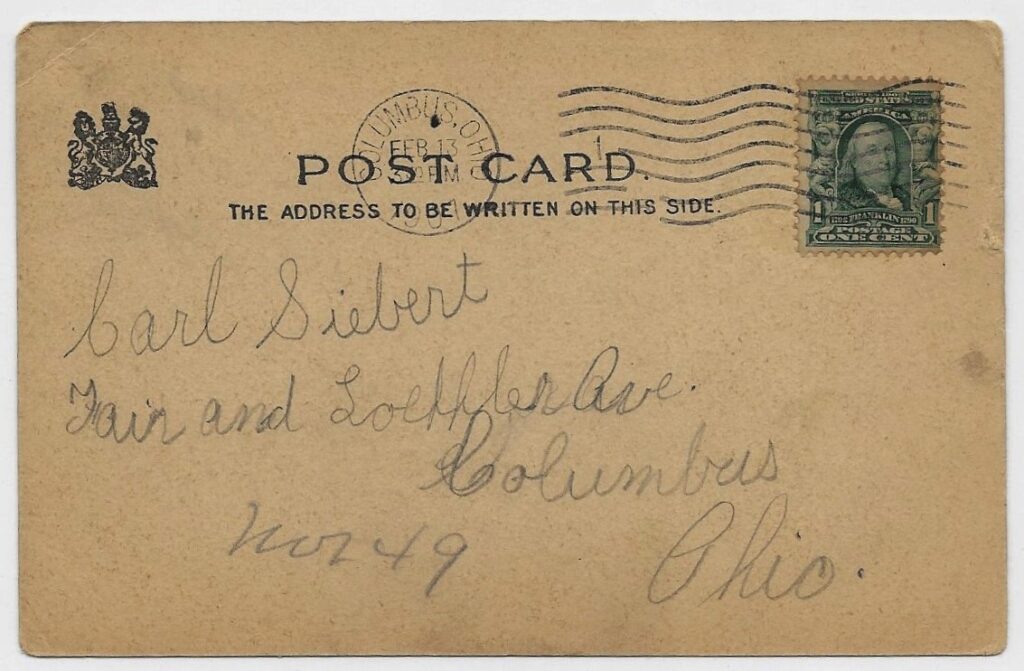 COLUMBUS, OHIO
FEB 13
PM
1
POST CARD.
THE ADDRESS TO BE WRITTEN ON THIS SIDE.
SERIES 1902
UNITED STATES OF
AMERICA
1 FRANKLIN 1
POSTAGE
ONE CENT
Carl Siebert
Fair and Loeffler Ave.
Columbus
49
Ohio.